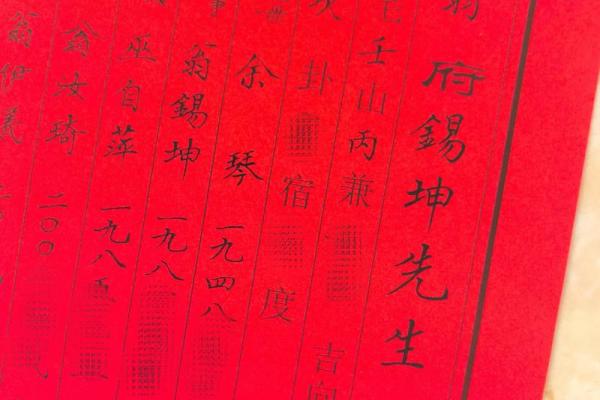 府錫坤先生
壬山丙兼
吉向
卦
宿
度
余琴
一九四八
翁錫坤
一九八
巫自萍
一九八五
翁汝琦
二〇〇
翁伊義